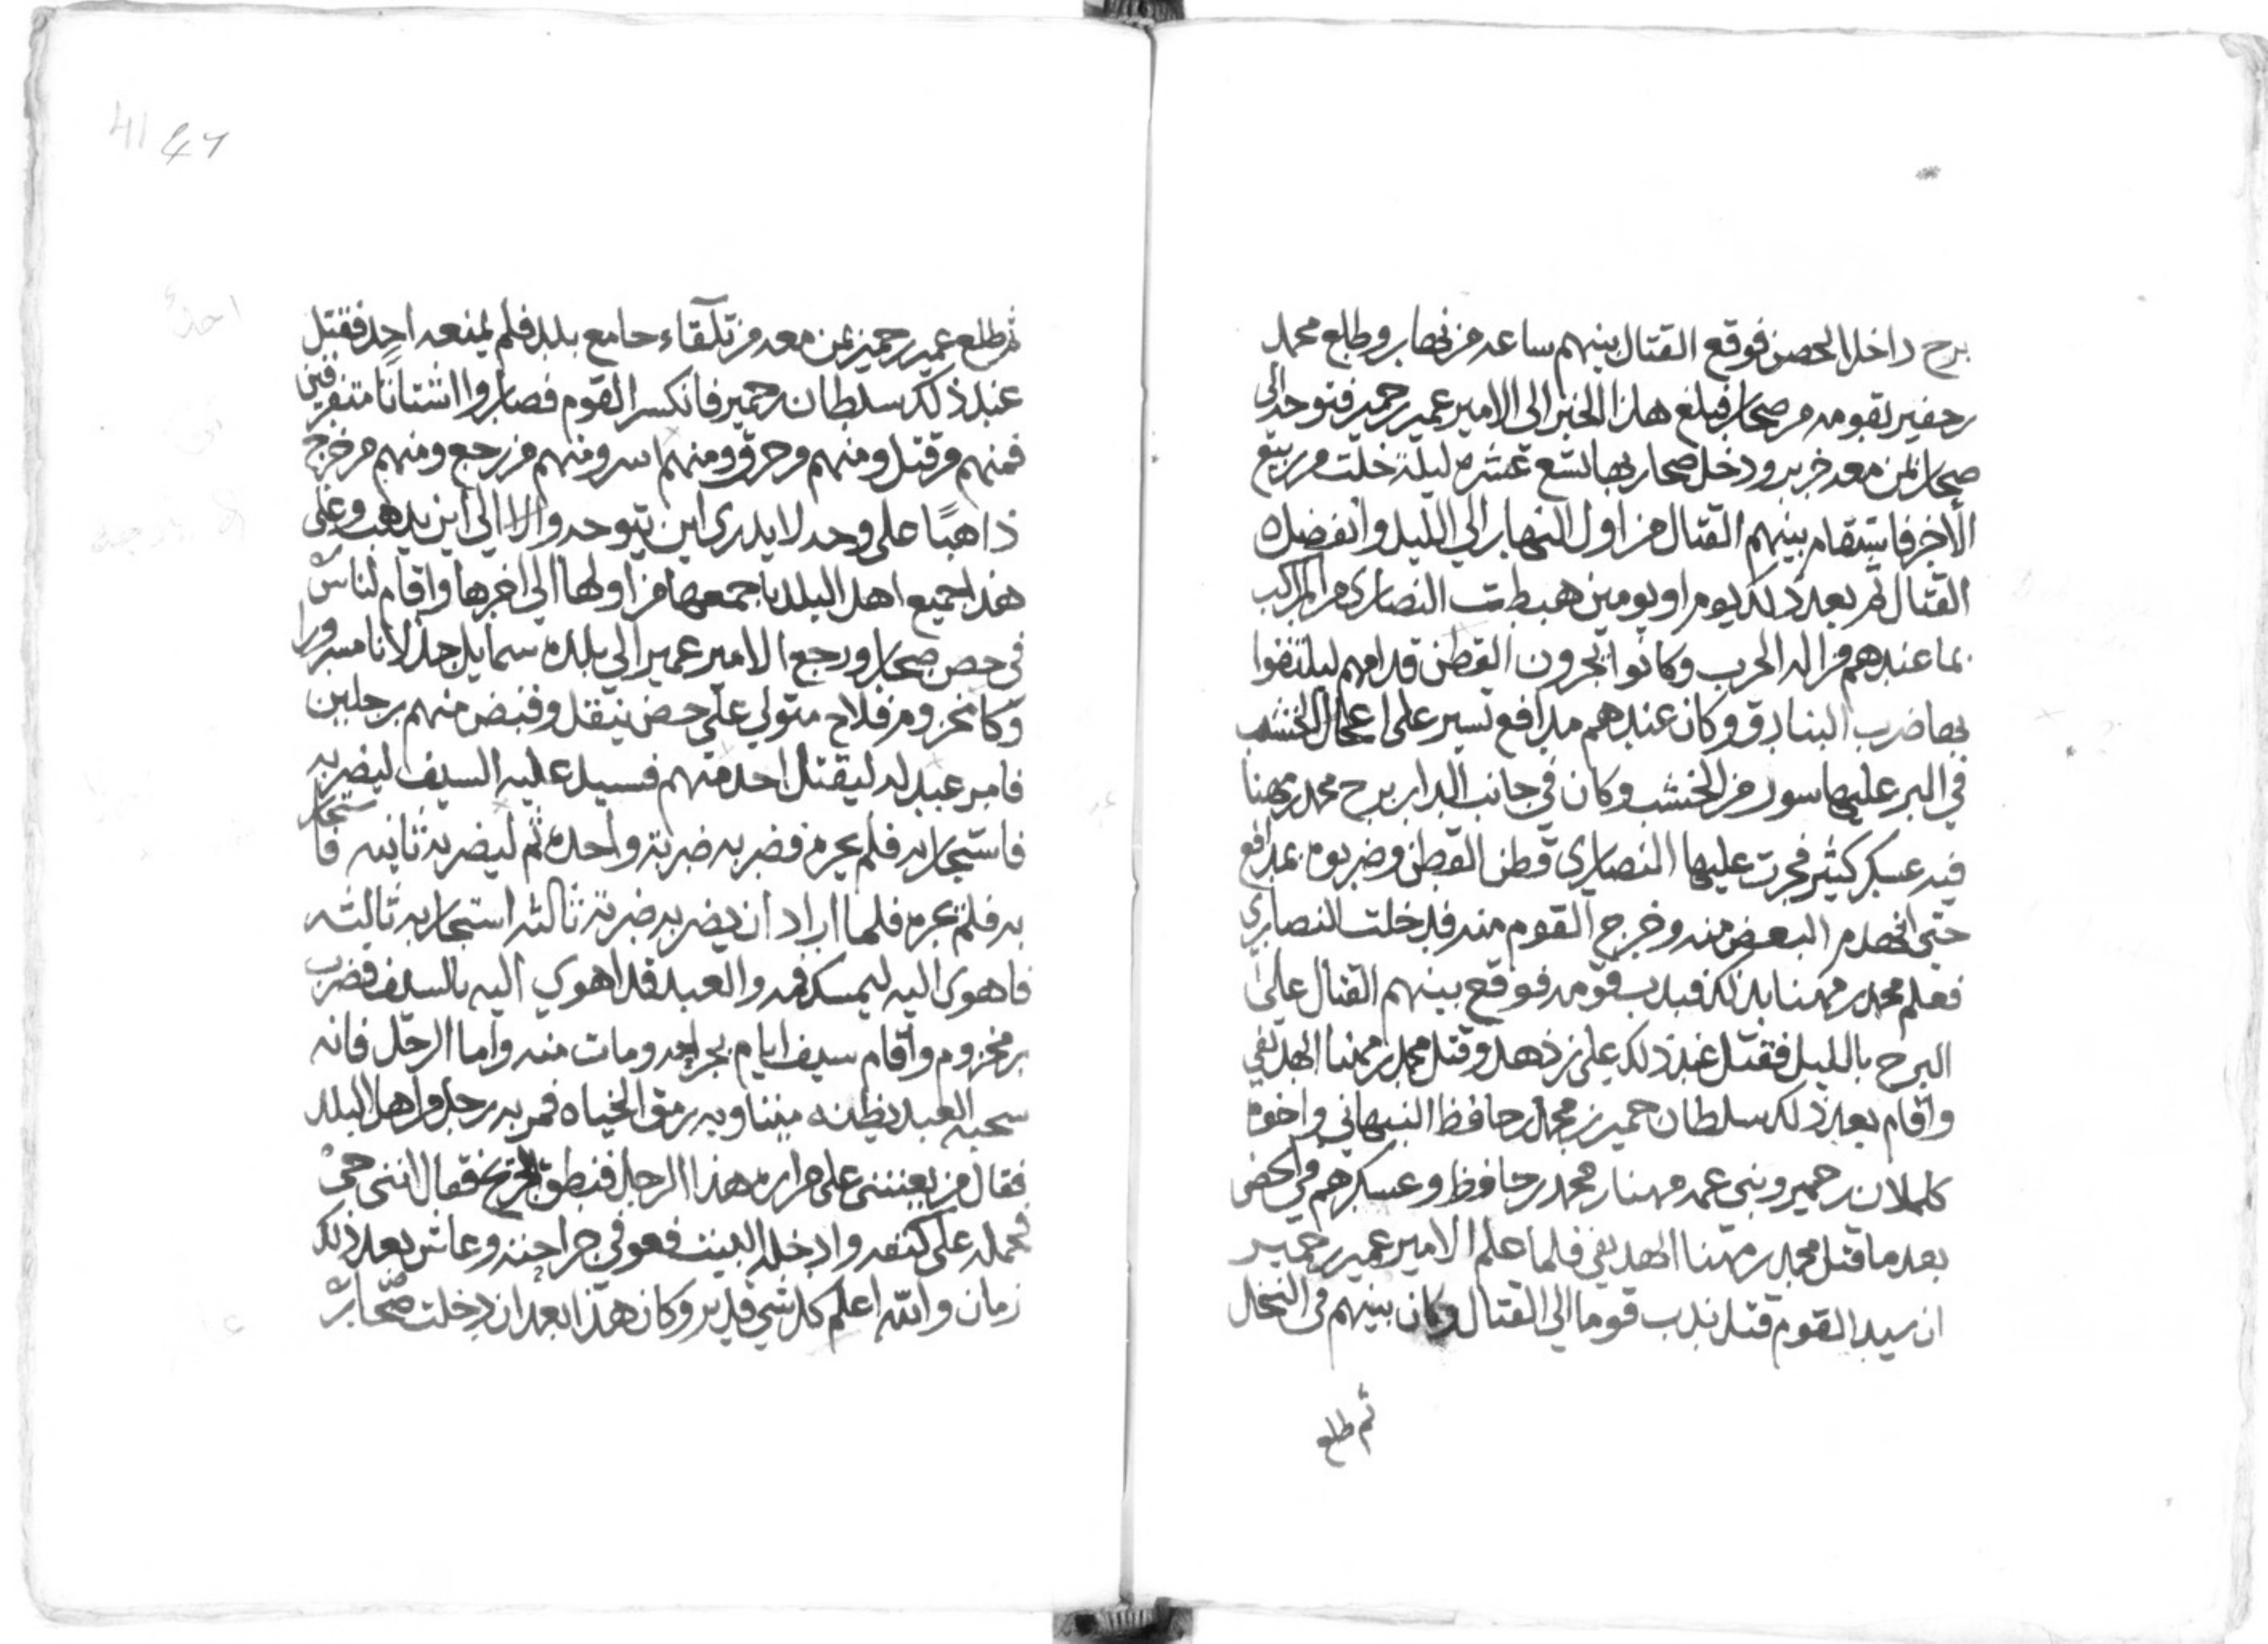 برج داخل الحصن فوقع القتال بينهم ساعه من نهار وطلع محمد
بن جفير بقومه من صحار فبلغ هذا الخبر الى الامير عمير بن حمير فتوجه الى
صحار بمن معه خرير ودخل صحار نهار تسع عشره ليلة خلت من ربيع
الاخر فاستقام بينهم القتال من اول النهار الي الليل وانفصل
القتال ثم بعد ذلك يوم او يومين هبطت النصارى من المراكب
بما عندهم من اله الحرب وكانوا يجرون القطن قدامهم ليلتقوا
بها ضرب البنادق وكان عندهم مدافع تسير على اعجال الخشب
في البر عليها سور من الخشب وكان في جانب الدار برج محمد بن مهنا
فيه عسكر كثير فجرت عليها النصاري قطن القطن وضربوه بمدافع
حتى انهدم البعض منه وخرج القوم منه فدخلت النصارى
فعلم محمد بن مهنا بذلك فبدب قومه فوقع بينهم القتال على
البرج بالليل فقتل عند ذلك علي بن ذهل وقتل محمد بن مهنا الهديفي
واقام بعد ذلك سلطان حمير بن محمد بن حافظ النبهاني واخوه
كهلان بن حمير وبني عمه مهنا بن محمد بن حافظ وعسكرهم في الحصن
بعد ما قتل محمد بن مهنا الهديفي فلما علم الامير عمير بن حمير
ان سيد القوم قتل ندب قوما الى القتال وكان بينهم في النخل
ثم طلع
ثم طلع عمير بن حمير بمن معه من تلقاء جامع بلد فلم يمنعه احد فقتل
عند ذلك سلطان بن حمير فانكسر القوم فصاروا اشتاتا متفرقين
فمنهم من قتل ومنهم من حرق ومنهم اسر ومنهم من رجع ومنهم من خرج
ذاهبا على وجه لا يدري اين يتوجه والا الي اين يذهب وعلى
هذا جميع اهل البلد باجمعها من اولها الي اخرها واقام لناس
في حصن صحار ورجع الامير عمير الي بلده سمايل جذلانا مسرورا
وكان مخزوم بن فلاح متولي علي حصن ينقل وقبض منهم رجلين
فامر عبد له ليقتل احد منهم فسل عليه السيف ليضربه
فاستجار به فلم يجره فضربه ضربة واحده ثم ليضربه ثانيه فاستجار
به فلم يجره فلما اراد ان يضربه ضربة ثالثه استجار به ثالثه
فاهوى اليه ليمسك فمه والعبد قد اهوي اليه بالسيف فضرب
بن مخزوم واقام سبعة ايام بجراحه ومات منه واما الرجل فانه
سحبه العبد يظنه ميتا وبه رمق الحياه فمر به رجل من اهل البلد
فقال من يعينني على مواراة هذا الرجل فنطق الجريح فقال انني حي
فحمله على كتفه وادخله البيت فعوفي جراحته وعاش بعد ذلك
زمان والله اعلم كل شي قدير وكان هذا بعد ان دخلت صحار